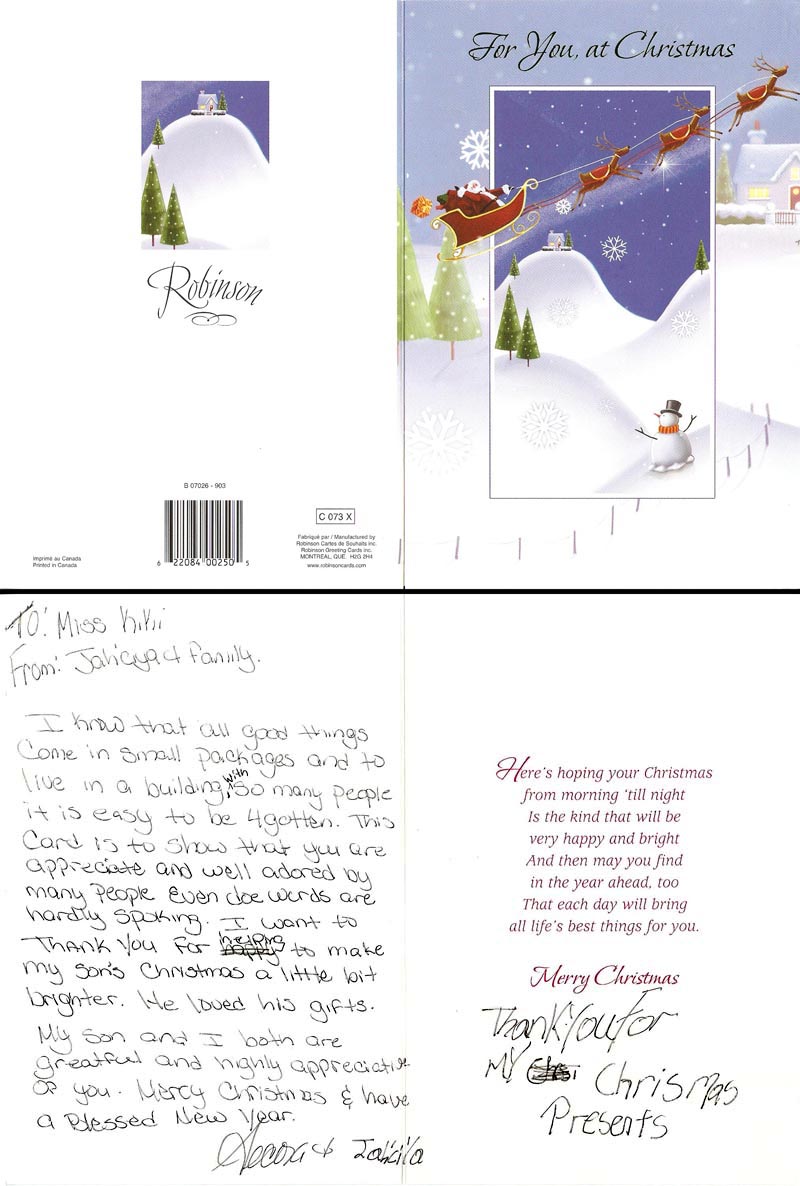 For You, at Christmas
Robinson
B 07026 - 903
C 073 X
6 22084 00250 5
Imprimé au Canada
Printed in Canada
Fabriqué par / Manufactured by
Robinson Cartes de Souhaits inc.
Robinson Greeting Cards inc.
MONTREAL, QUE. H2G 2H4
www.robinsoncards.com
TO: Miss Kikii
From: & Family.
I know that all good things
Come in small packages and to
live in a building, with so many people
it is easy to be 4gotten. This
Card is to show that you are
appreciate and well adored by
many People Even doe words are
hardly spoking. I want to
THANK You For helping to make
my son's Christmas a little bit
brighter. He loved his gifts.
My Son and I both are
greatfull and highly appreciative
of you. Merry Christmas & have
a Blessed New Year.
&
Here's hoping your Christmas
from morning 'till night
Is the kind that will be
very happy and bright
And then may you find
in the year ahead, too
That each day will bring
all life's best things for you.
Merry Christmas
Thank You For
MY Chrismas
Presents